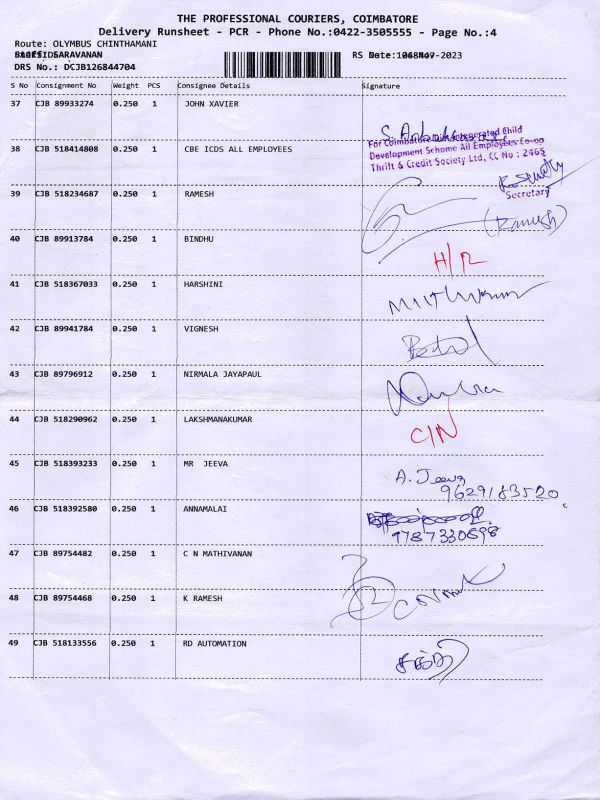 THE PROFESSIONAL COURIERS, COIMBATORE
Delivery Runsheet - PCR - Phone No.:0422-3505555 - Page No.:4
Route: OLYMBUS CHINTHAMANI
SARAVANAN
DRS No.: DCJB126844704
S No Consignment No Weight PCS Consignee Details Signature
37 CJB 89933274 0.250 1 JOHN XAVIER
38 CJB 518414808 0.250 1 CBE ICDS ALL EMPLOYEES
For Coimbatore Integerated Child
Development Scheme All Employees Co-op
Thrift & Credit Society Ltd, CC No : 2465
Secretary
39 CJB 518234687 0.250 1 RAMESH
(Ramesh)
40 CJB 89913784 0.250 1 BINDHU
41 CJB 518367033 0.250 1 HARSHINI
42 CJB 89941784 0.250 1 VIGNESH
43 CJB 89796912 0.250 1 NIRMALA JAYAPAUL
44 CJB 518290962 0.250 1 LAKSHMANAKUMAR
C/N
45 CJB 518393233 0.250 1 MR JEEVA
A. Jeeva
9629183520
46 CJB 518392580 0.250 1 ANNAMALAI
47 CJB 89754482 0.250 1 C N MATHIVANAN
48 CJB 89754468 0.250 1 K RAMESH
49 CJB 518133556 0.250 1 RD AUTOMATION